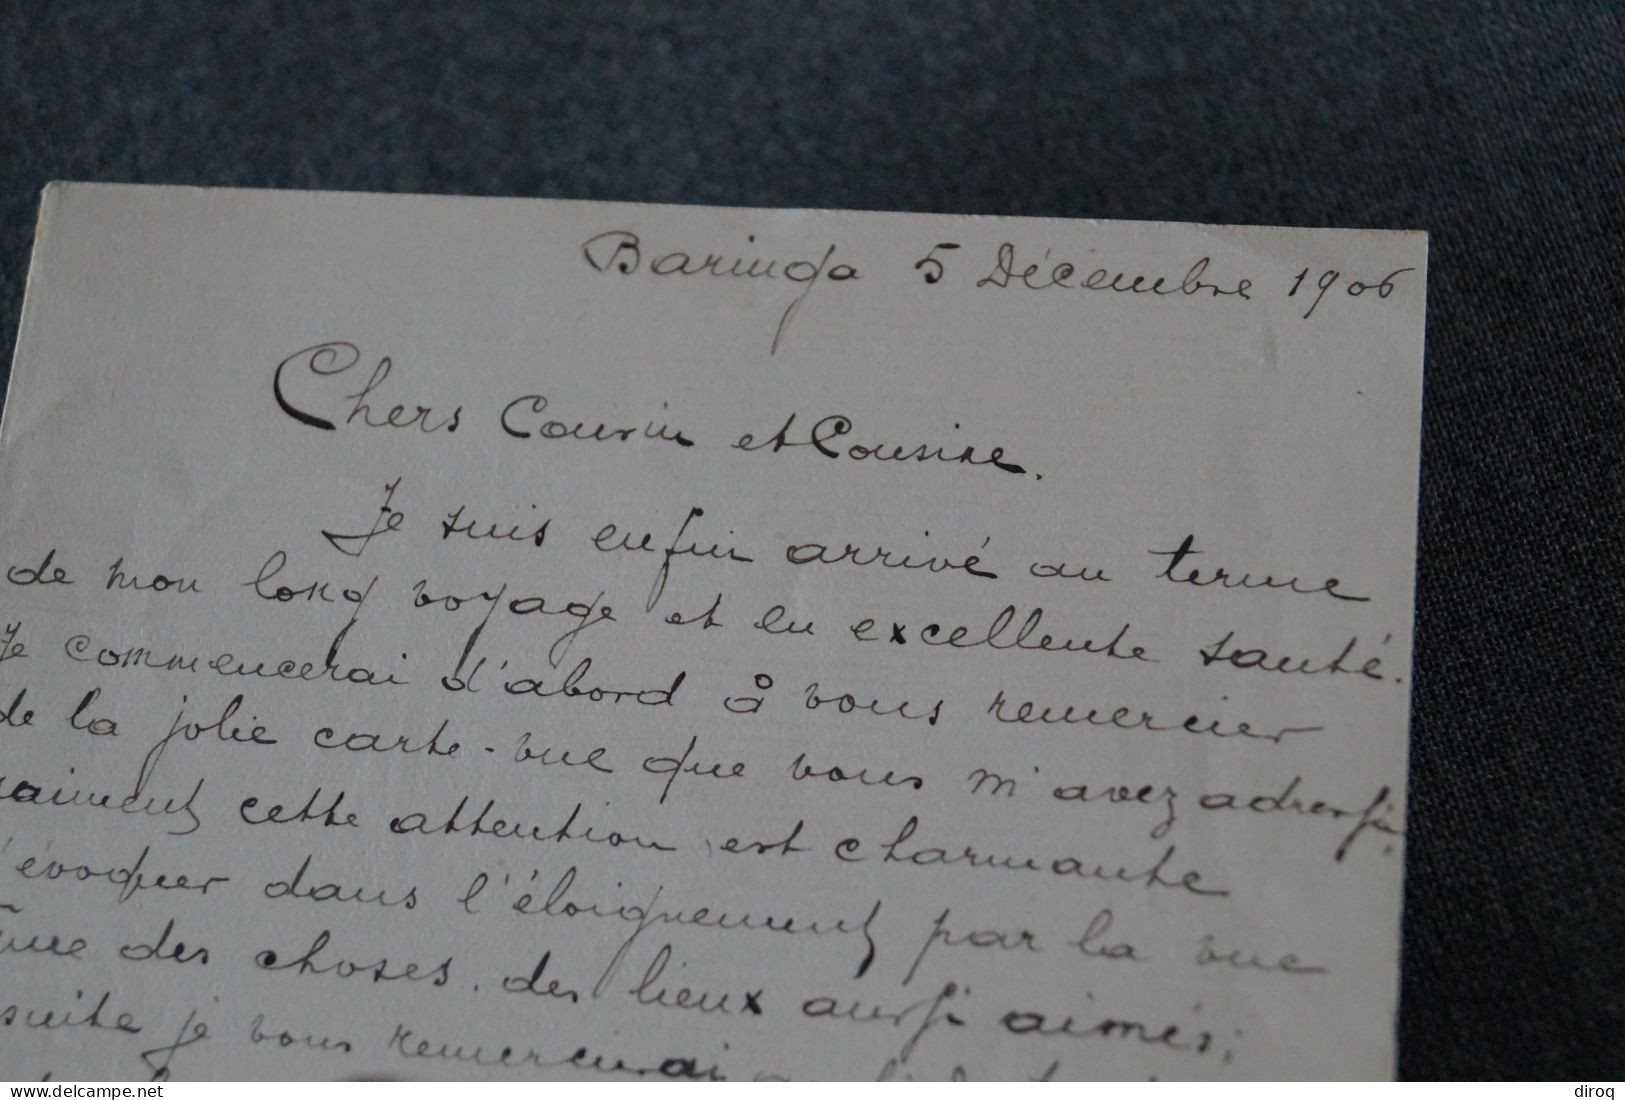 Baringa 5 Décembre 1906
Chers Cousin et Cousine.
Je suis enfin arrivé au terme
de mon long voyage et en excellente santé.
Je commencerai d'abord à vous remercier
de la jolie carte-vue que vous m'avez adressée,
raiment cette attention est charmante
d'évoquer dans l'éloignement par la vue
même des choses, des lieux aussi aimés;
suite je vous remercierai
© www.delcampe.net
diroq